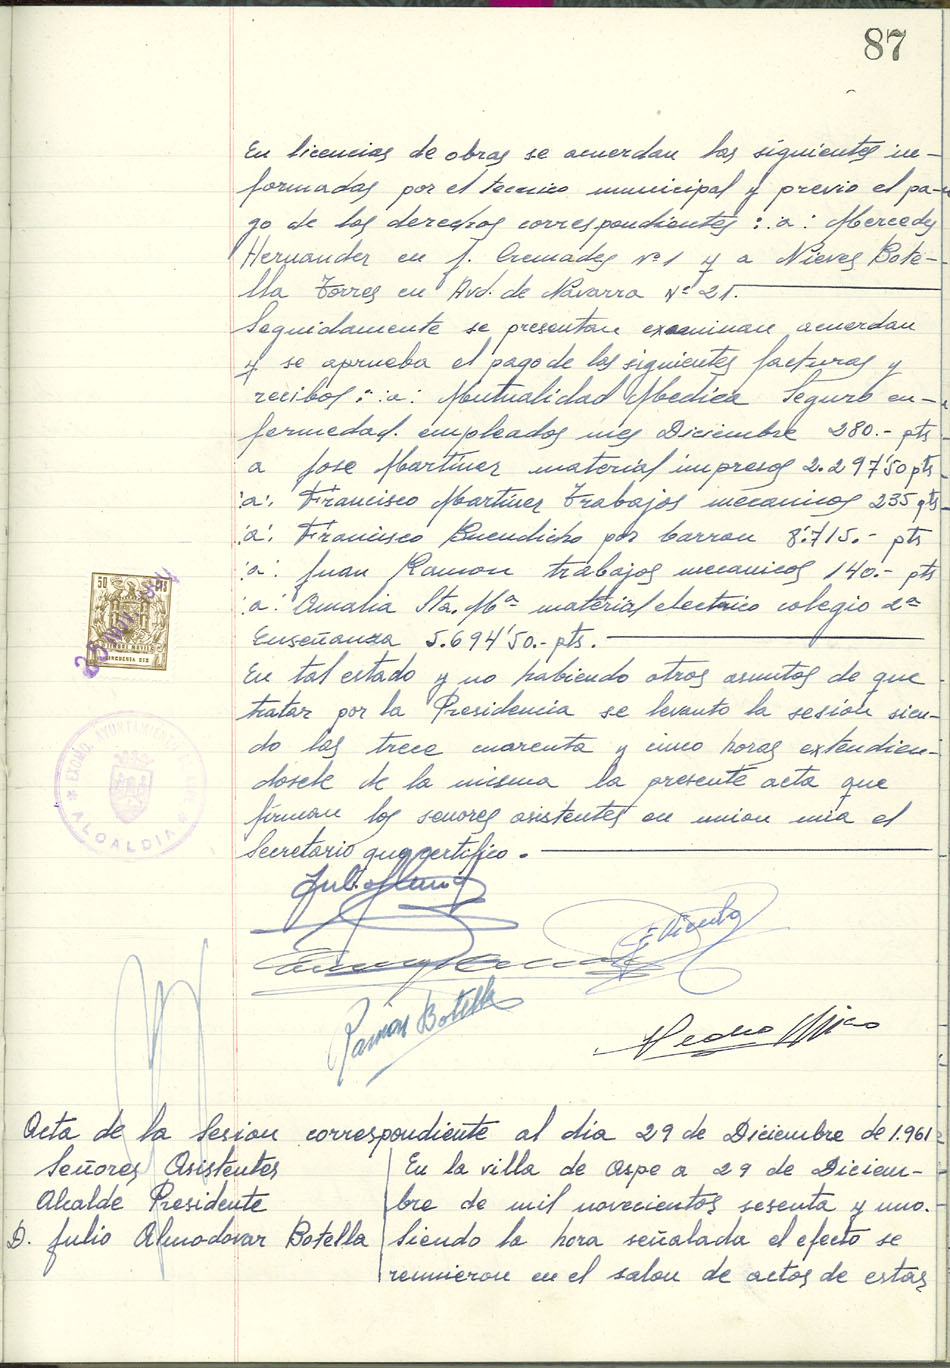 87
En licencias de obras se acuerdan las siguientes in-
formadas por el tecnico municipal y previo el pa-
go de los derechos correspondientes : :a: Mercedes
Hernander en J. Cremades nº 1 y a Nieves Bote-
lla Torres en Avd. de Navarra Nº 21.
Seguidamente se presentan examinan acuerdan
y se aprueba el pago de las siguientes facturas y
recibos : :a: Mutualidad Medica Seguro en-
fermedad. empleados mes Diciembre 280.- pts
a Jose Martiner material impresos 2.297'50 pts
:a: Francisco Martiner Trabajos mecanicos 235 pts
:a: Francisco Buendicho por carron 8.715.- pts
:a: Juan Ramon trabajos mecanicos 140.- pts
:a: Amalia Sta. Mª material electrico colegio 2ª
Enseñanza 5.694'50.- pts.
En tal estado y no habiendo otros asuntos de que
tratar por la Presidencia se levanto la sesion sien-
do las trece cuarenta y cinco horas extendien-
dosele de la misma la presente acta que
firman los señores asistentes en union mia el
Secretario que certifico.
50 PTS
TIMBRE MOVIL
CINCUENTA CTS
EXCMO. AYUNTAMIENTO DE
ALCALDIA
Vicente
Ramón Botella
Pedro
Acta de la Sesion correspondiente al dia 29 de Diciembre de 1.961
Señores Asistentes
Alcalde Presidente
D. Julio Almodovar Botella
En la villa de Aspe a 29 de Diciem-
bre de mil novecientos sesenta y uno.
Siendo la hora señalada el efecto se
reunieron en el salon de actos de estas